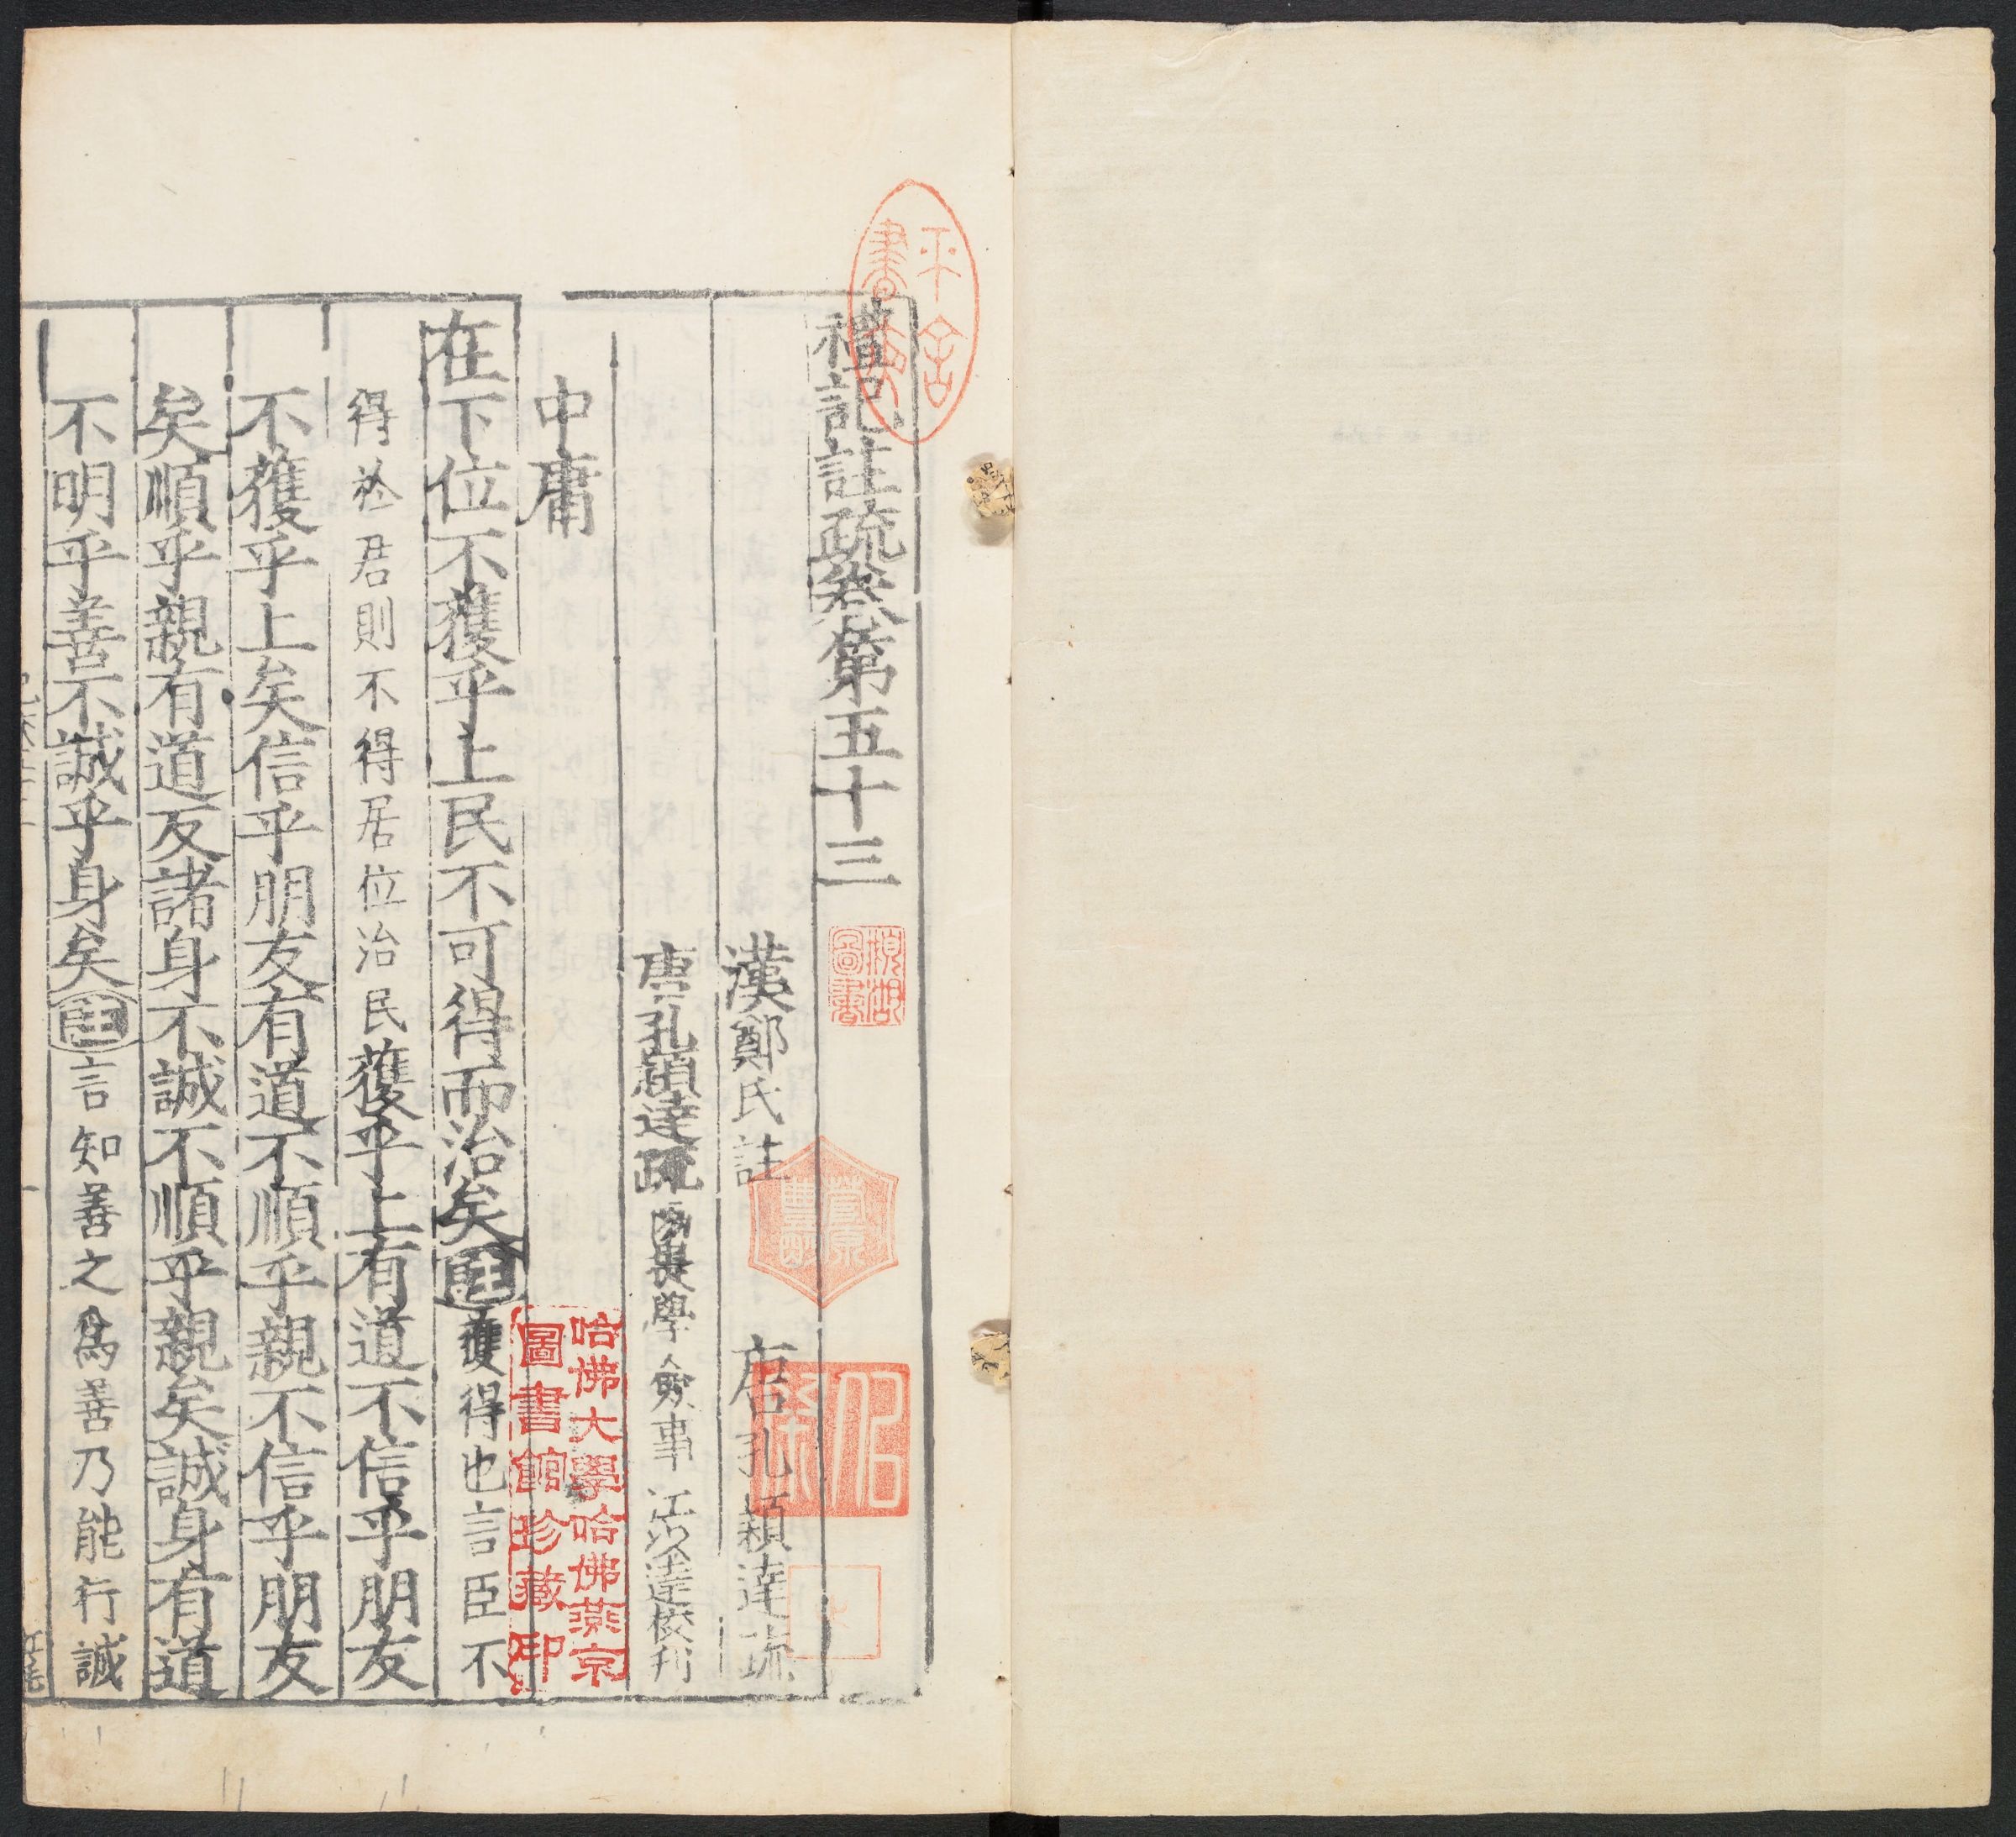 禮記註疏卷第五十三
漢鄭氏註 唐孔穎達疏
唐孔穎達疏 學僉事江以達校刊
中庸
在下位不獲乎上民不可得而治矣註獲得也言臣不
得於君則不得居位治民獲乎上有道不信乎朋友
不獲乎上矣信乎朋友有道不順乎親不信乎朋友
矣順乎親有道反諸身不誠不順乎親矣誠身有道
不明乎善不誠乎身矣註言知善之爲善乃能行誠
哈佛大學哈佛燕京
圖書館珍藏印